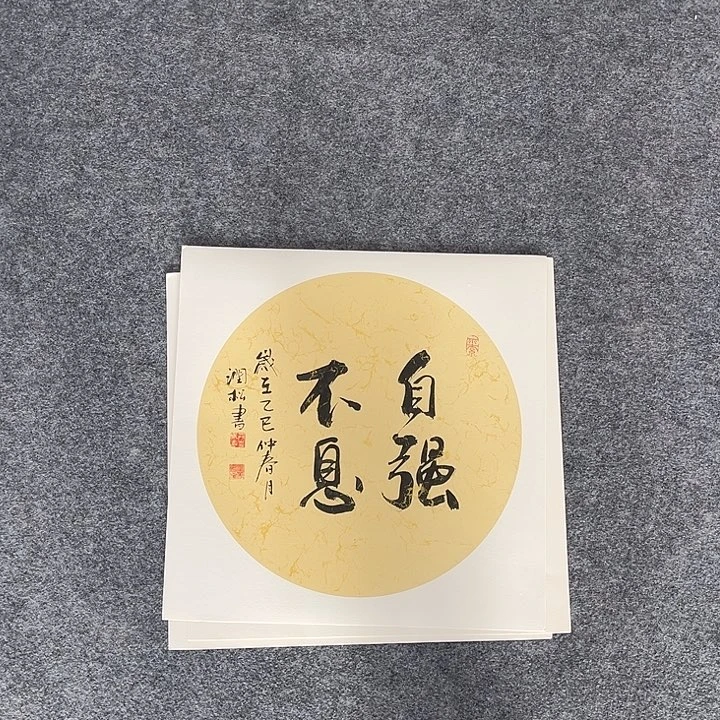 自强
不息
歲在乙巳仲春月
润松書